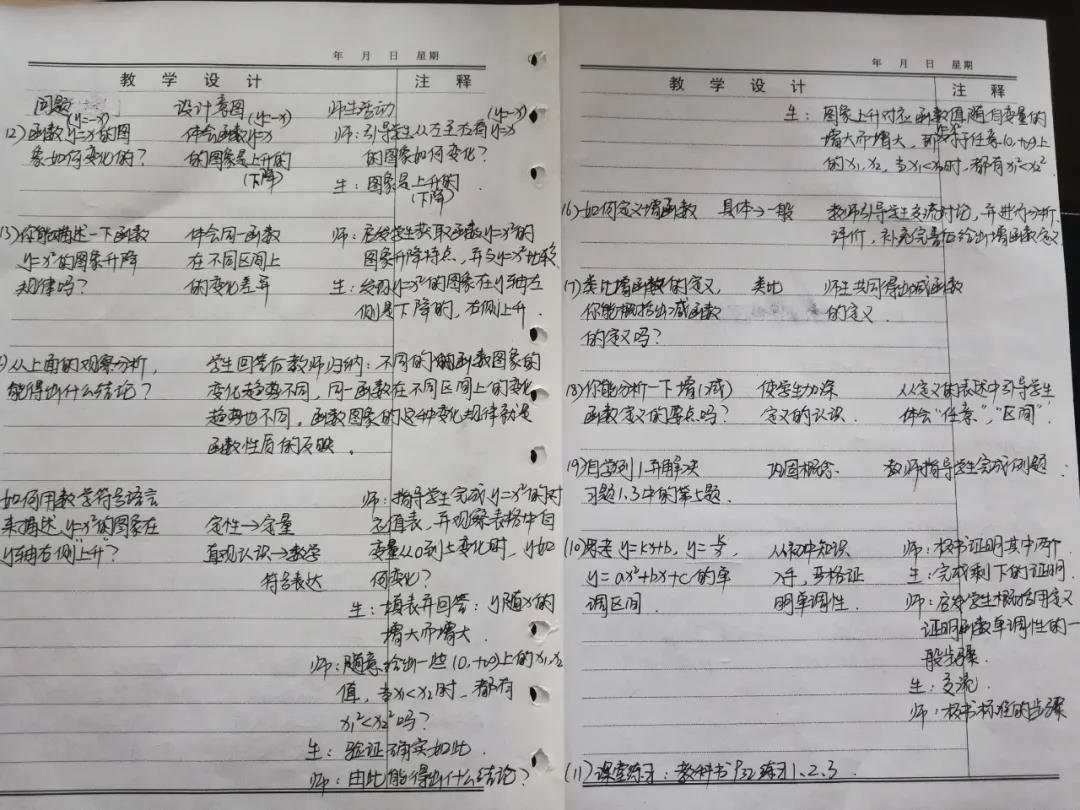 年 月 日 星期
教 学 设 计 注 释
问题 设计意图 师生活动
(y=-x) (y=-x) (y=-x)
(2)函数y=x的图 体会函数y=x 师：引导学生从左至右看y=x
象如何变化的？ 的图象是上升的 的图象如何变化？
(下降) 生：图象是上升的
(下降)
(3)你能描述一下函数 体会同一函数 师：启发学生获取函数y=x²的
y=x²的图象升降 在不同区间上 图象升降特点，并与y=x比较
规律吗？ 的变化差异 生：发现y=x²的图象在y轴左
侧是下降的，右侧上升．
)从上面的观察分析， 学生回答后教师归纳：不同的函数图象的
能得出什么结论？ 变化趋势不同，同一函数在不同区间上的变化
趋势也不同，函数图象的这种变化规律就是
函数性质的反映。
如何用数学符号语言 师：指导学生完成y=x²的对
来描述y=x²的图象在 定性→定量 应值表，并观察表格中自
y轴右侧"上升"？ 直观认识→数学 变量从0到5变化时，y如
符号表达 何变化？
生：填表并回答：y随x的
增大而增大．
师：随意给出一些(0,+∞)上的x₁,x₂
值，当x₁<x₂时，都有
x₁²<x₂²吗？
生：验证确实如此．
师：由此能得出什么结论？
年 月 日 星期
教 学 设 计 注 释
生：图象上升对应函数值随自变量的
增大而增大，即对于任意(0,+∞)上
的x₁,x₂，当x₁<x₂时，都有x₁²<x₂²
(6)如何定义增函数 具体→一般 教师引导学生交流讨论，并进行分析
评价，补充完善后给出增函数定义
(7)类比增函数的定义， 类比 师生共同得出减函数
你能概括出减函数 的定义．
的定义吗？
(8)你能分析一下增(减) 使学生加深 从定义的表述中引导学生
函数定义的要点吗？ 定义的认识． 体会"任意"，"区间"．
(9)自学例1并解决 巩固概念． 教师指导学生完成例题
习题1.3中的第1题．
(10)思考y=kx+b，y=k/x， 从初中知识 师：板书证明其中两个．
y=ax²+bx+c的单 入手，严格证 生：完成剩下的证明．
调区间． 明单调性． 师：启发学生概括用定义
证明函数单调性的一
般步骤．
生：交流．
师：板书标准的步骤
(11)课堂练习：教科书P32练习1、2、3．